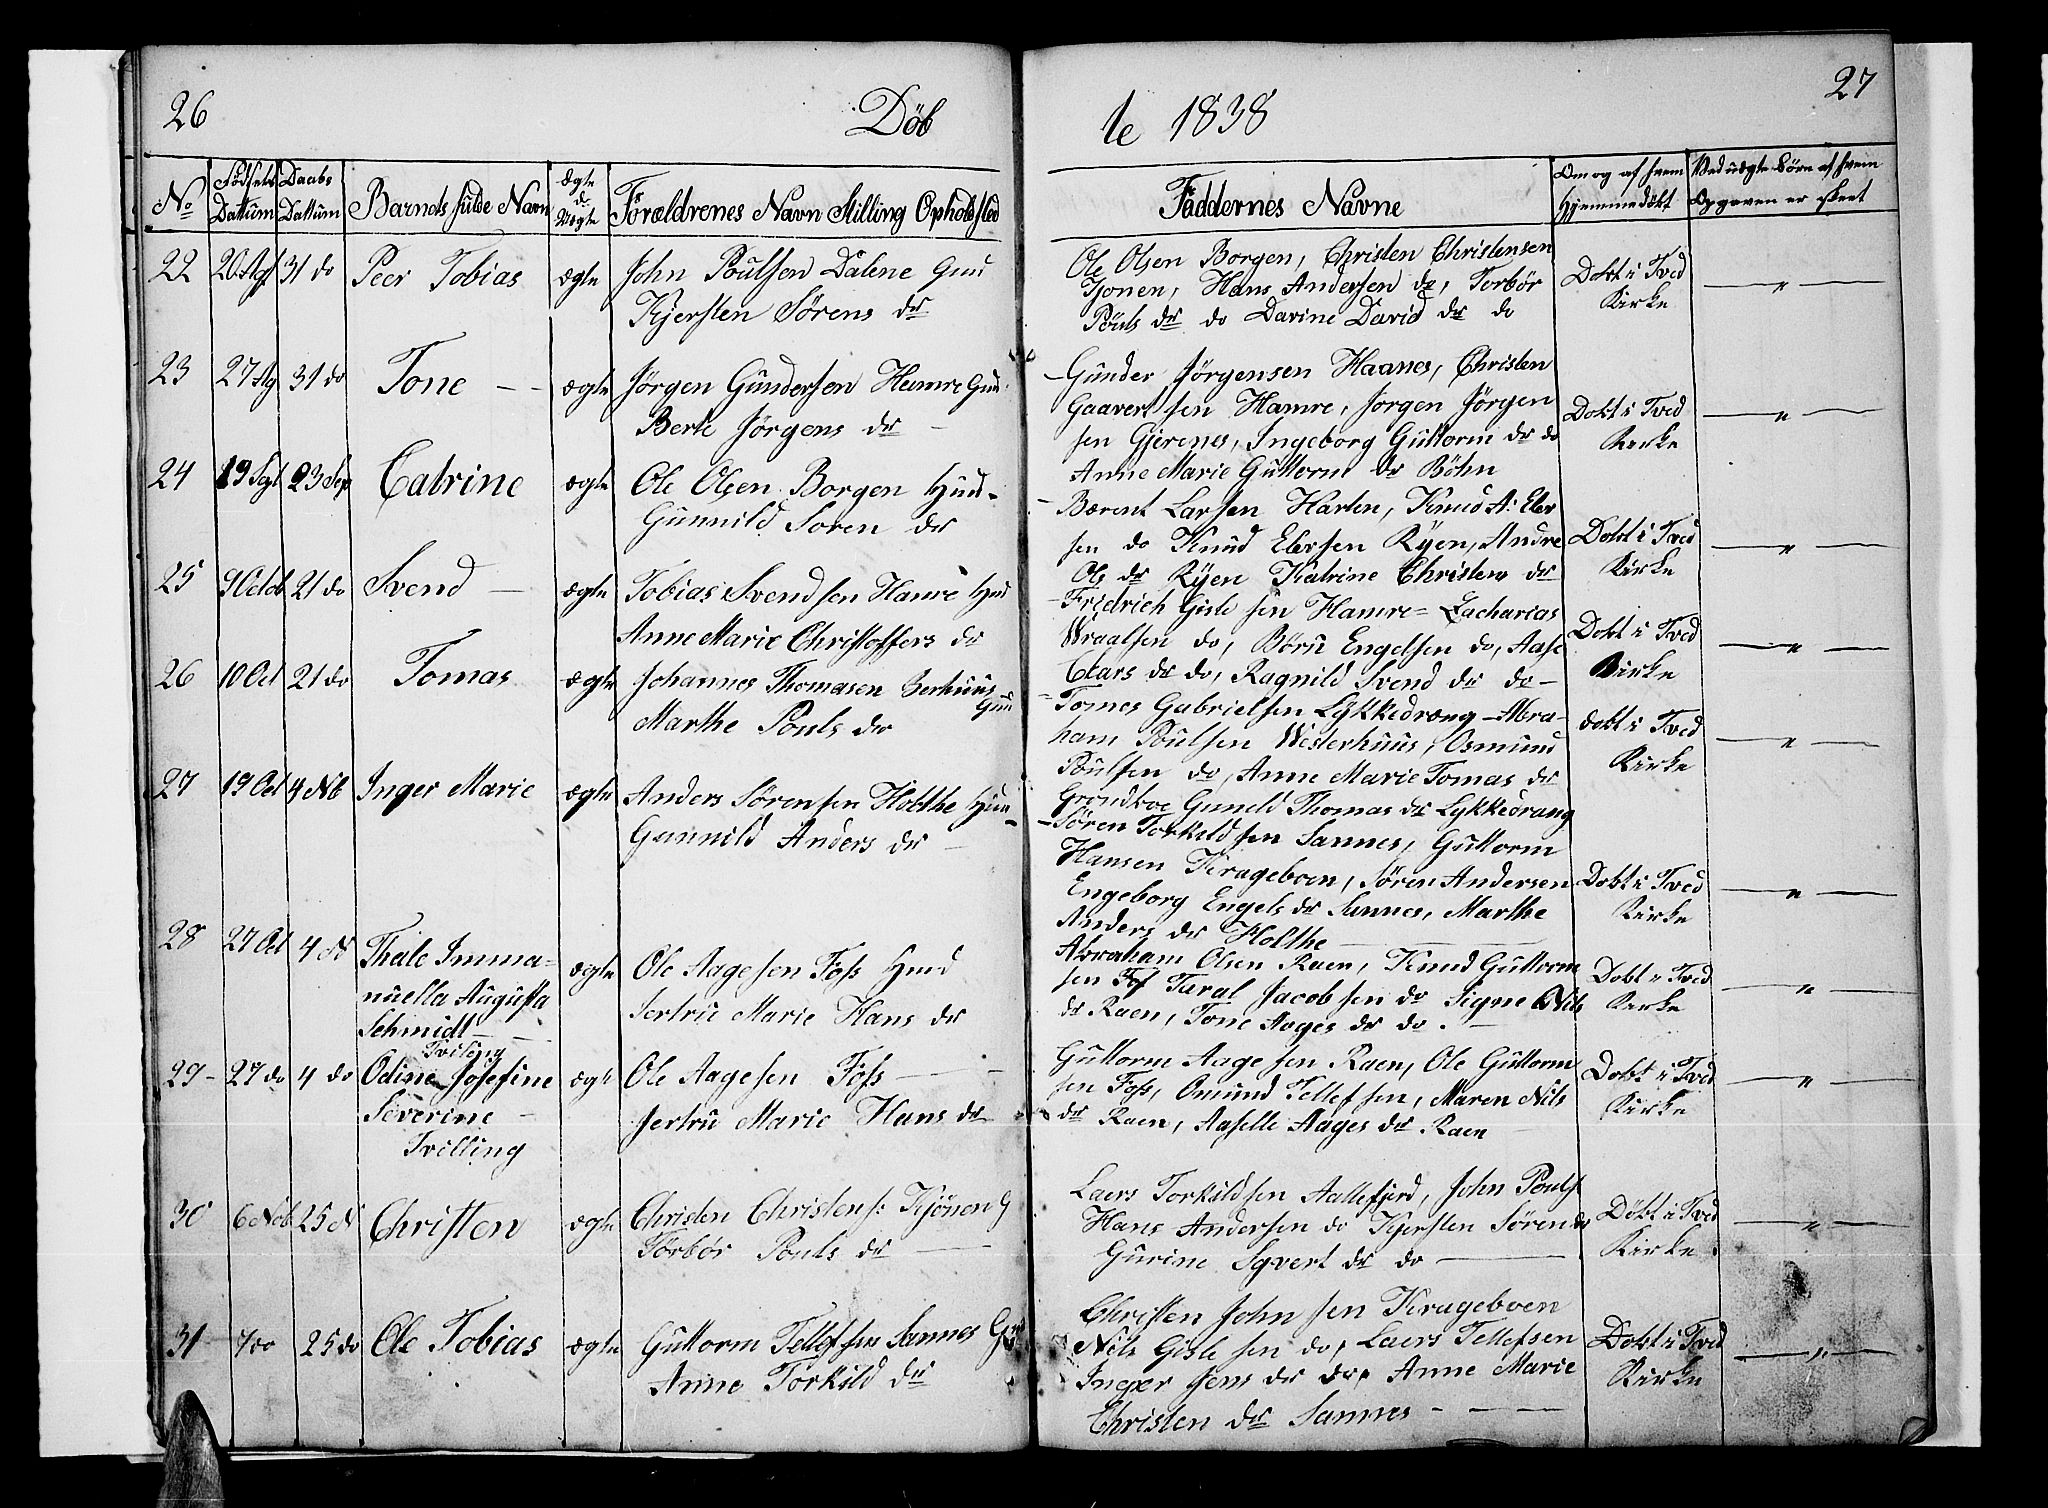 26
Döb
te 1838
27
No
Födsels Dattum
Daabs Dattum
Barnets fulde Navn
Ægte d: Uægte
Forældrenes Navn Stilling Opholdsted
Faddernes Navne
Om og af hvem Hjemmedöbt
Ved uægte Börn af hvem Opgaven er skeet
22 20 Ag 31 do Peer Tobias ægte John Poulsen Dalene Gmd
Kjersten Sörens dr
Ole Olsen Borgen, Christen Christensen
Tjonen, Hans Andersen do, Torbör
Pouls dr do Davine David dr do
Dobt i Tved
Kirke
— " —
23 27 Ag 31 do Tone — ægte Jörgen Gundersen Hamre Gm
Berte Jörgens dr —
Gunder Jörgensen Haanes, Christen
Gaavert sen Hamre, Jorgen Jörgen
sen Gjerenes, Ingeborg Guttorm dr do
Anne Marie Guttorm do Böhn
Dobt i Tved
Kirke
— " —
24 19 Spt 23 Sep Catrine ægte Ole Olsen Borgen Huu-
Gunnild Soren dr
Bærent Larsen Harten, Knud A: Eber
sen do Knud Ebersen Ryen, Andre
Ols dr Ryen Katrine Christens dr
Dobt i Tved
Kirke
— " —
25 9 Octob 21 do Svend — ægte Tobias Svendsen Hamre Huu
Anne Marie Christoffers dr
Fridrich Gisle sen Hamre = Zacharias
Wraalsen do, Börü Engelsen do, Aase
Clars dr do, Ragnild Svend dr do —
Dobt i Tved
Kirke
— " —
26 10 Oct 21 do Tomas ægte Johannes Thomasen
Marthe Pouls dr
Tomes Gabrielsen Lykkedræng — Abra-
ham Poulsen Westerhuus, Osmund
Poulsen do, Anne Marie Tomas dr
Grondtoe Guneld Thomas dr Lykkedrang
dobt i Tved
Kirke
— " —
27 19 Oct 4 Nb Inger Marie ægte Anders Sörensen Holthe Huu-
Gunnild Anders dr —
Sören Torkildsen Sannes, Guttorm
Hansen Krageboen, Sören Andersen
Engeborg Engels dr Sannes, Marthe
Anders dr Holthe —
Dobt i Tved
Kirke
— " —
28 27 Oct 4 N Thale Imma-
nuella Augusta
Schmidt —
Tviling
ægte Ole Aagesen Foss Huud
Jertru Marie Hans dr
Abraham Olsen Raen, Knud Guttorm
sen Fos Taral Jacobsen do Signe Nils
dr Raen, Tone Aages dr do. —
Dobt i Tved
Kirke
— " —
29 - 27 do 4 do Odine Josefine
Severine —
Tvilling
ægte Ole Aagesen Foss —
Jertru Marie Hans dr
Guttorm Aage sen Raen, Ole Guttorm
sen Foss, Omund Tellefsen, Maren Nils
dr Raen, Aaselle Aages dr Raen
Dobt i Tved
Kirke
— " —
30 6 Nob 25 N Christen ægte Christen Christens: Kjönen G
Törbör Pouls dr —
Laers Torkildsen Aallefjerd, John Pouls
Hans Andersen do Kjersten Sören dr
Gurine Syvert dr do —
Döbt i Tved
Kirke
— " —
31 7 do 25 do Ole Tobias ægte Guttorm Tellefsen Sannes G
Anne Torkild dr
Christen John sen Krageboen
Nils Gisle sen do, Laers Tellefsen
Inger Jens dr do, Anne Marie
Christen dr Sannes —
Dobt i Tved
Kirke
— " —